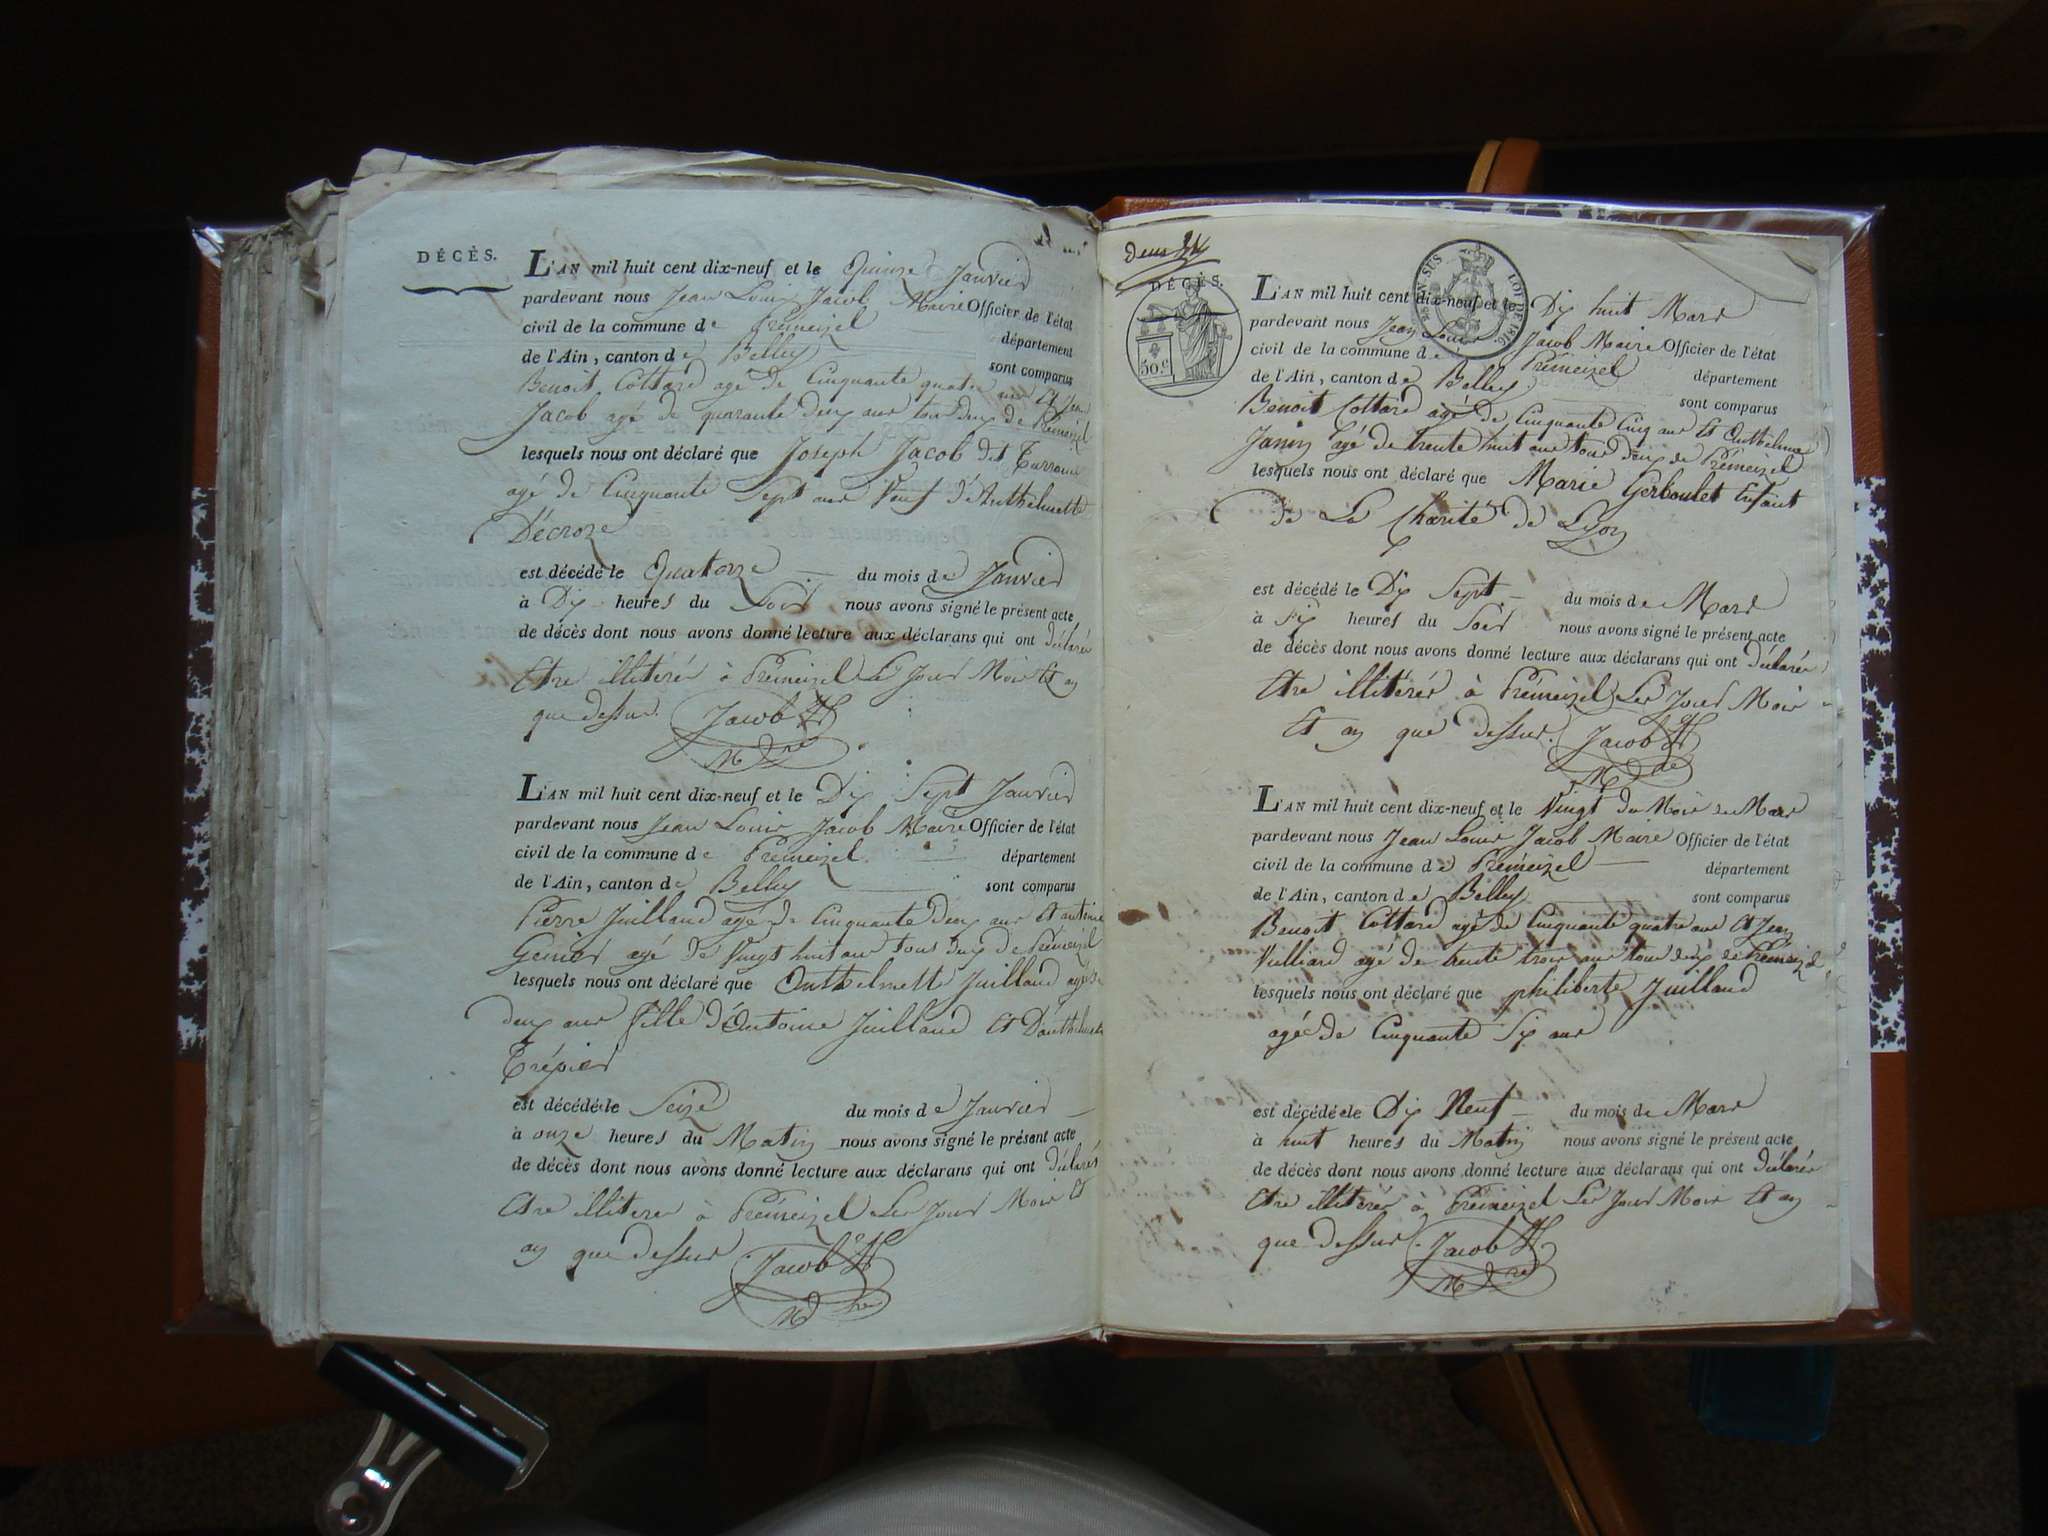 DÉCÈS.
L'AN mil huit cent dix-neuf et le Quinze Janvier
pardevant nous Jean Louis Jacob Maire Officier de l'état
civil de la commune de Prémeizel département
de l'Ain, canton de Belley sont comparus
Benoit Cottard agé de Cinquante quatre ans Et Jean
Jacob agé de quarante deux ans tous deux de Prémeizel
lesquels nous ont déclaré que Joseph Jacob dit
agé de Cinquante Sept ans Veuf d'Anthelmette
Décroze
est décédé le Quatorze du mois de Janvier
à Dix heures du Soir nous avons signé le présent acte
de décès dont nous avons donné lecture aux déclarans qui ont déclarés
Etre illitérés à Prémeizel Les Jour Mois Et an
que dessus. Jacob
M re
L'AN mil huit cent dix-neuf et le Dix Sept Janvier
pardevant nous Jean Louis Jacob Maire Officier de l'état
civil de la commune de Prémeizel département
de l'Ain, canton de Belley sont comparus
Pierre Juilland agé de Cinquante deux ans Et antoine
agé de Vingt huit ans tous deux de Prémeizel
lesquels nous ont déclaré que Anthelmette Juilland agée de
deux ans fille d'Antoine Juilland Et D'anthelmette
Trépier
est décédé le Seize du mois de Janvier
à onze heures du Matin nous avons signé le présent acte
de décès dont nous avons donné lecture aux déclarans qui ont déclarés
Etre illitérés à Prémeizel Les Jour Mois Et
an que dessus Jacob
M re
deux
DÉCÈS.
50 c
EN SUS LOI DE 1816.
L'AN mil huit cent dix-neuf et le Dix huit Mars
pardevant nous Jean Louis Jacob Maire Officier de l'état
civil de la commune de Prémeizel département
de l'Ain, canton de Belley sont comparus
Benoit Cottard agé de Cinquante Cinq ans Et Anthelme
Janin agé de trente huit ans tous deux de Prémeizel
lesquels nous ont déclaré que Marie Gerboulet Enfant
de La Charité de Lyon
est décédé le Dix Sept du mois de Mars
à Six heures du Soir nous avons signé le présent acte
de décès dont nous avons donné lecture aux déclarans qui ont déclarés
Etre illitérés à Prémeizel Les Jour Mois
Et an que dessus. Jacob
M re
L'AN mil huit cent dix-neuf et le Vingt du Mois de Mars
pardevant nous Jean Louis Jacob Maire Officier de l'état
civil de la commune de Prémeizel département
de l'Ain, canton de Belley sont comparus
Benoit Cottard agé de Cinquante quatre ans Et Jean
Vulliard agé de trente trois ans tous deux de Prémeizel
lesquels nous ont déclaré que philiberte Juilland
agé de Cinquante Six ans
est décédé le Dix Neuf du mois de Mars
à huit heures du Matin nous avons signé le présent acte
de décès dont nous avons donné lecture aux déclarans qui ont déclarés
Etre illitérés à Prémeizel Les Jour Mois Et an
que dessus. Jacob
M re